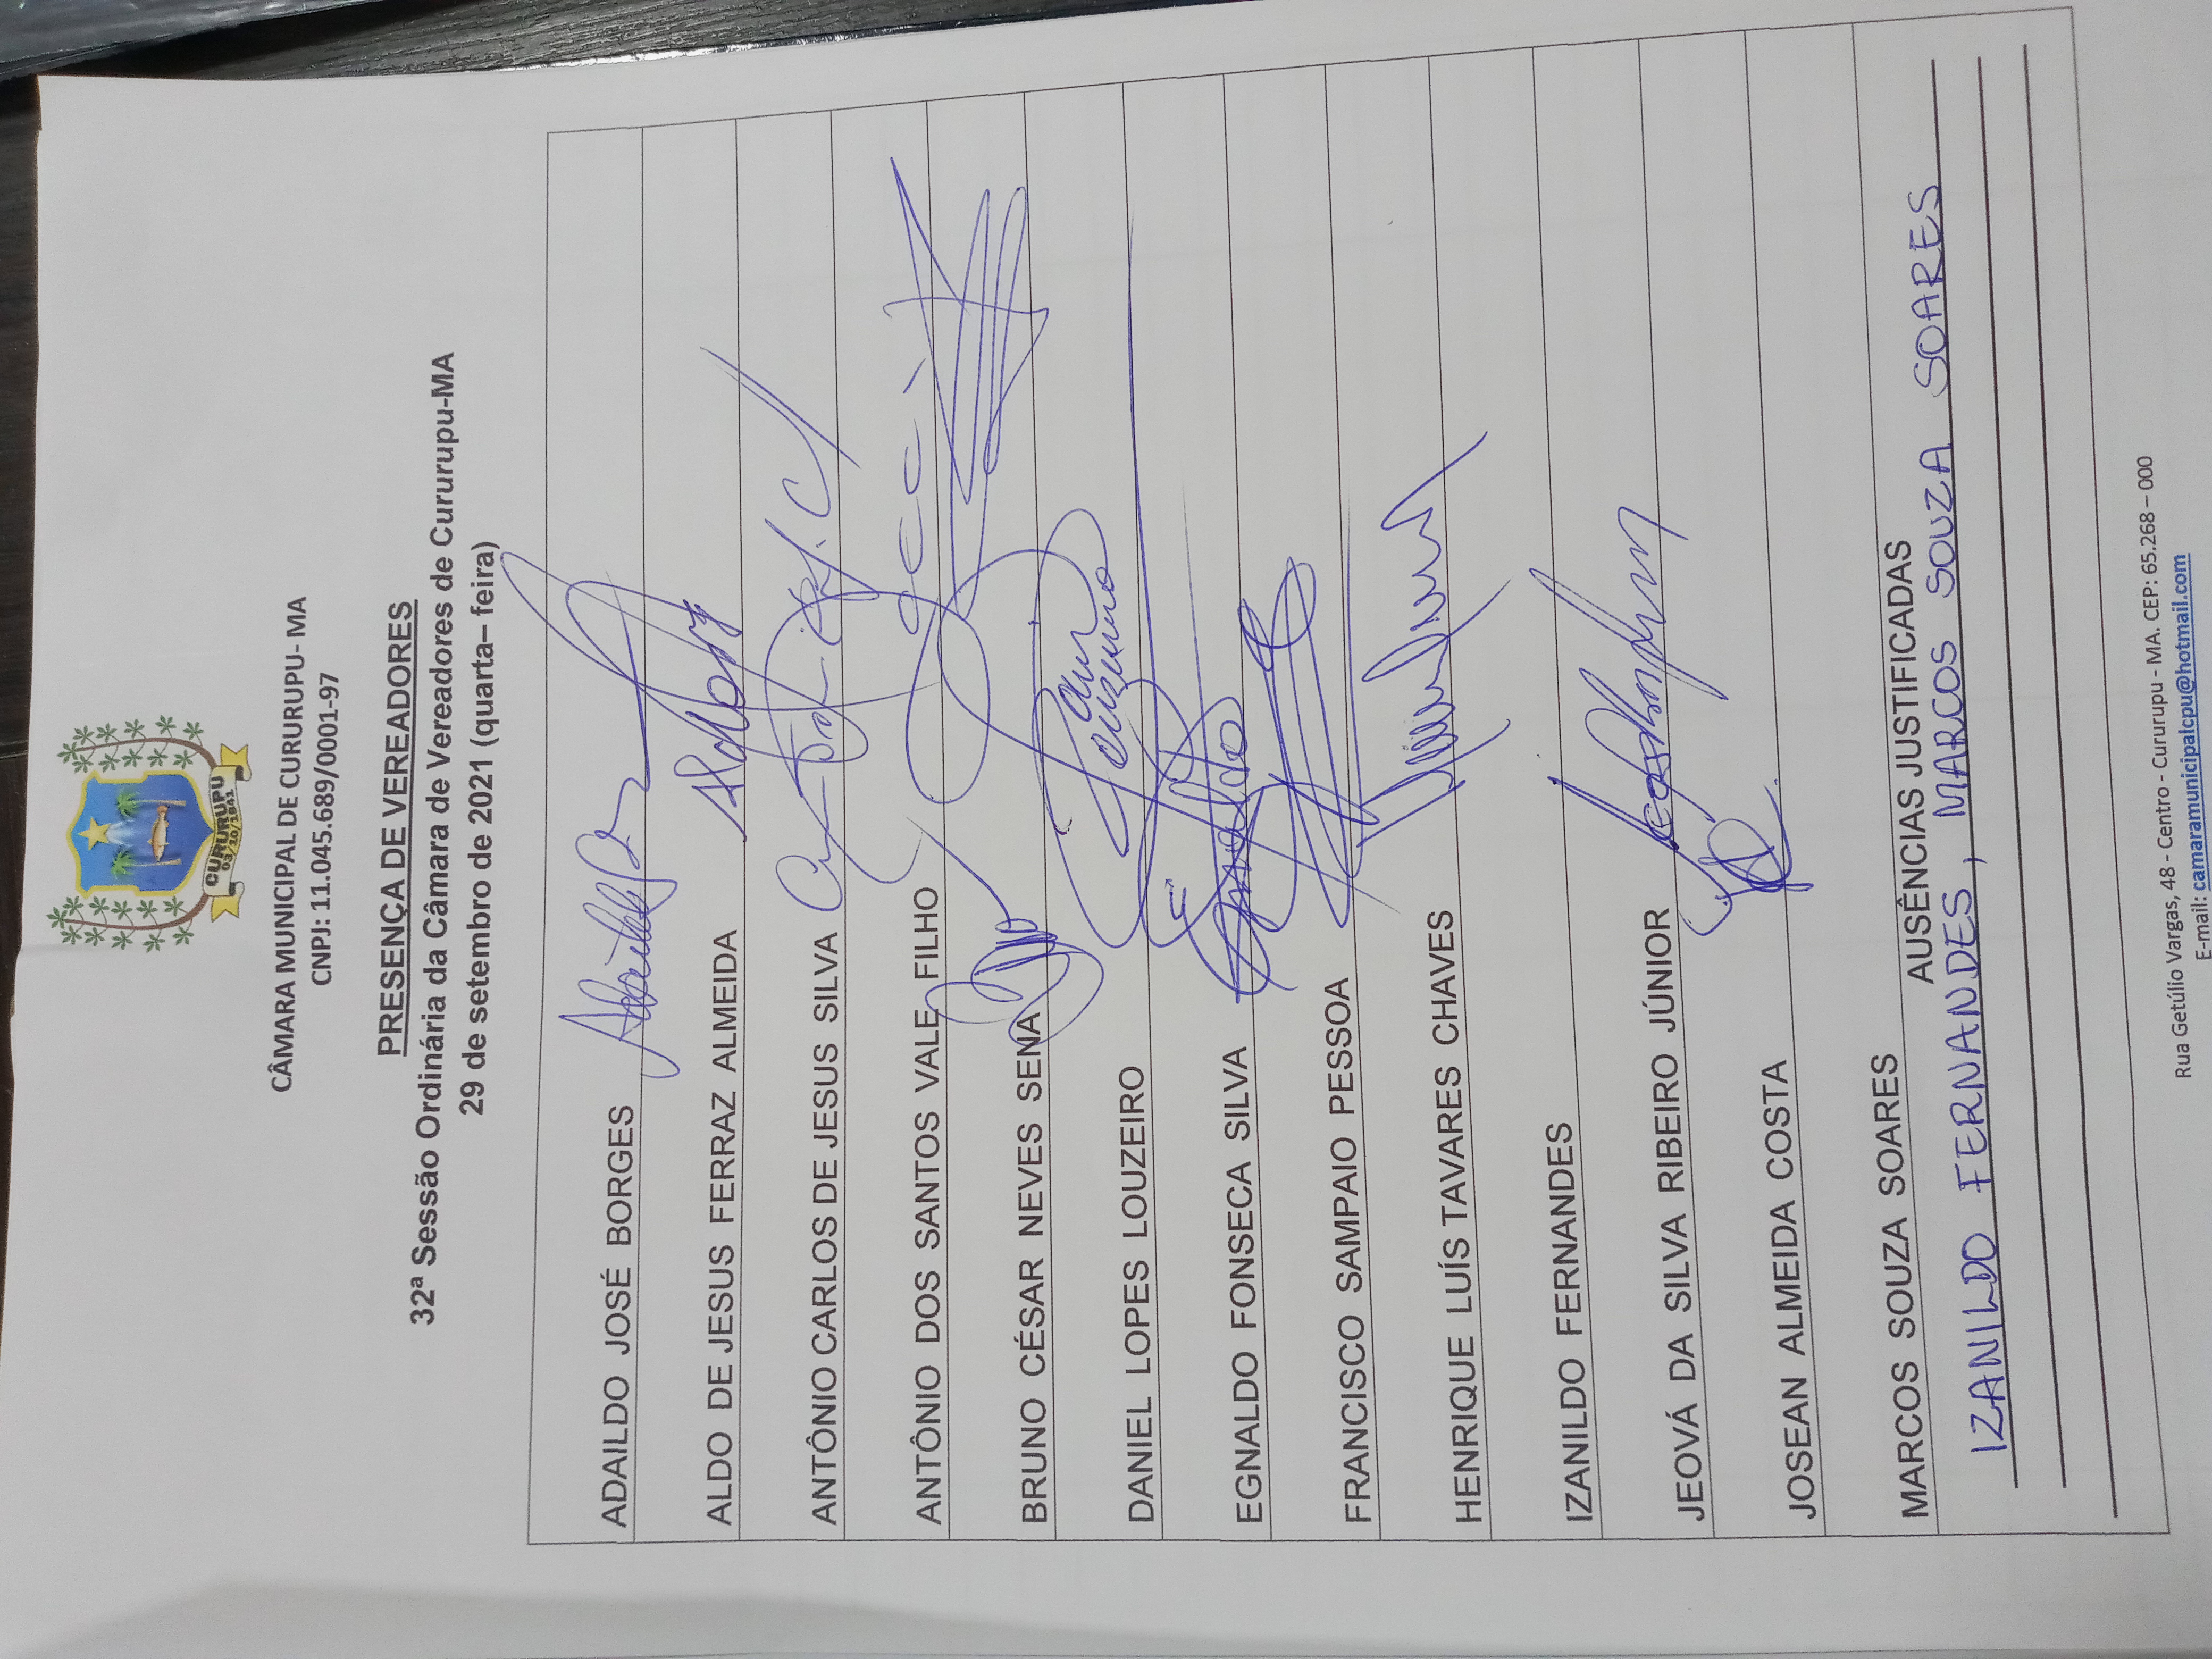 CURURUPU
03/10/1841
CÂMARA MUNICIPAL DE CURURUPU- MA
CNPJ: 11.045.689/0001-97
PRESENÇA DE VEREADORES
32ª Sessão Ordinária da Câmara de Vereadores de Cururupu-MA
29 de setembro de 2021 (quarta– feira)
ADAILDO JOSÉ BORGES
ALDO DE JESUS FERRAZ ALMEIDA
ANTÔNIO CARLOS DE JESUS SILVA
ANTÔNIO DOS SANTOS VALE FILHO
BRUNO CÉSAR NEVES SENA
DANIEL LOPES LOUZEIRO
EGNALDO FONSECA SILVA
FRANCISCO SAMPAIO PESSOA
HENRIQUE LUÍS TAVARES CHAVES
IZANILDO FERNANDES
JEOVÁ DA SILVA RIBEIRO JÚNIOR
JOSEAN ALMEIDA COSTA
MARCOS SOUZA SOARES
AUSÊNCIAS JUSTIFICADAS
IZANILDO FERNANDES, MARCOS SOUZA SOARES
Rua Getúlio Vargas, 48 - Centro - Cururupu - MA. CEP: 65.268 – 000
E-mail: camaramunicipalcpu@hotmail.com